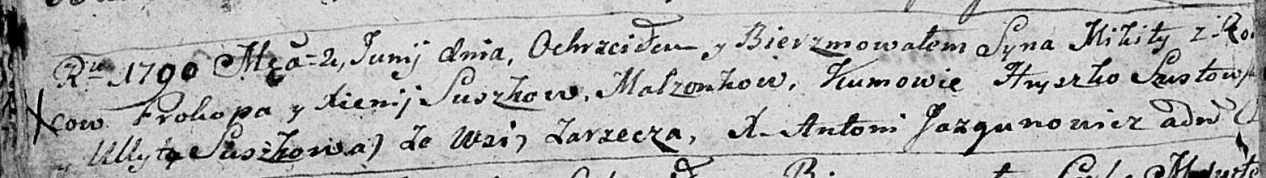 Ru 1790 Mca 2, Junij dnia, Ochrzciłem y Bierzmowałem Syna Mikity z Ro
cow Prokopa y Xienij Suszkow, Malzonkow, Kumowie Hryszko Szustow
Ullyta Suszkowa) Ze Wsi) Zarzecza, X. Antoni Jazgunowicz adm